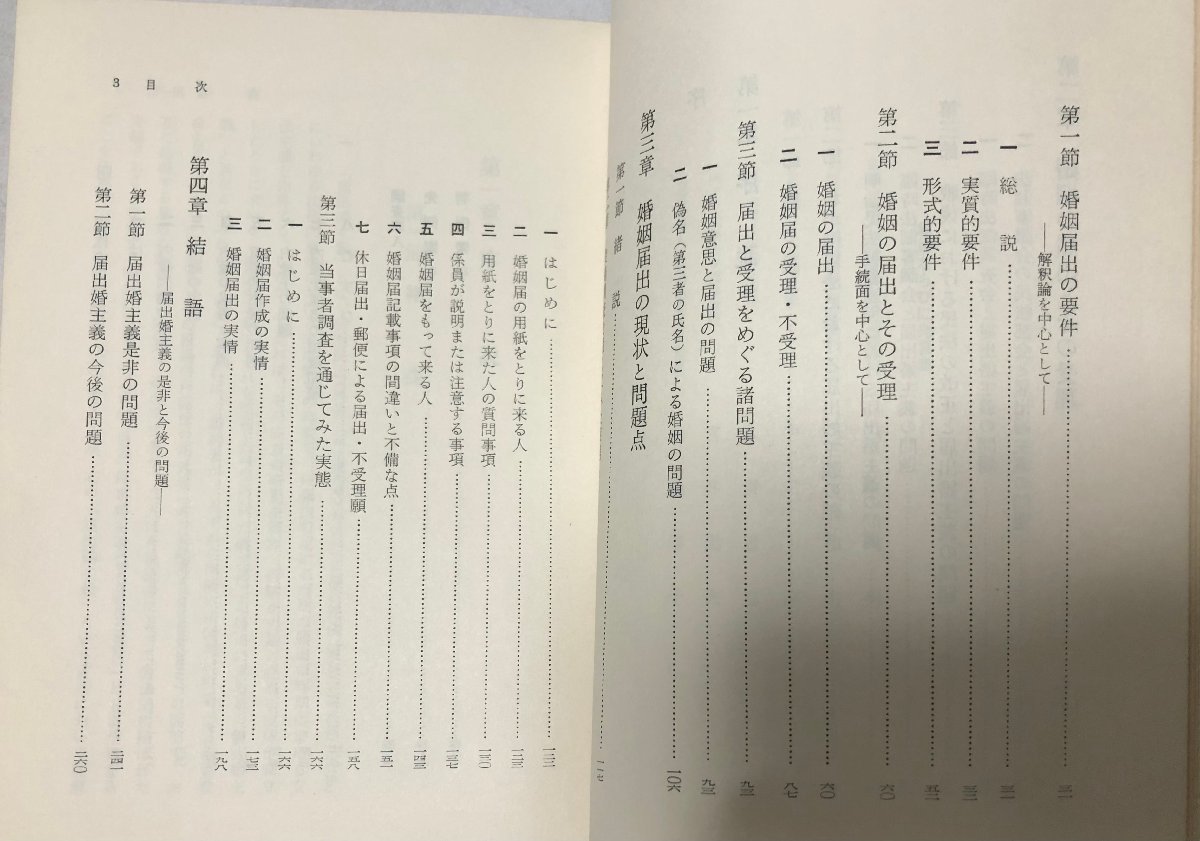 第一節 婚姻届出の要件……三一
――解釈論を中心として――
一 総説……三一
二 実質的要件……三二
三 形式的要件……五二
第二節 婚姻の届出とその受理……六〇
――手続面を中心として――
一 婚姻の届出……六〇
二 婚姻届の受理・不受理……八七
第三節 届出と受理をめぐる諸問題……九三
一 婚姻意思と届出の問題……九三
二 偽名(第三者の氏名)による婚姻の問題……一〇六
第三章 婚姻届出の現状と問題点
第一節 緒説……一一七
3 目次
一 はじめに……一二二
二 婚姻届の用紙をとりに来る人……一二三
三 用紙をとりに来た人の質問事項……一三〇
四 係員が説明または注意する事項……一三七
五 婚姻届をもって来る人……一四三
六 婚姻届記載事項の間違いと不備な点……一五一
七 休日届出・郵便による届出・不受理願……一五八
第三節 当事者調査を通じてみた実態……一六六
一 はじめに……一六六
二 婚姻届作成の実情……一七三
三 婚姻届出の実情……一九八
第四章 結語
――届出婚主義の是非と今後の問題――
第一節 届出婚主義是非の問題……二四一
第二節 届出婚主義の今後の問題……二六〇